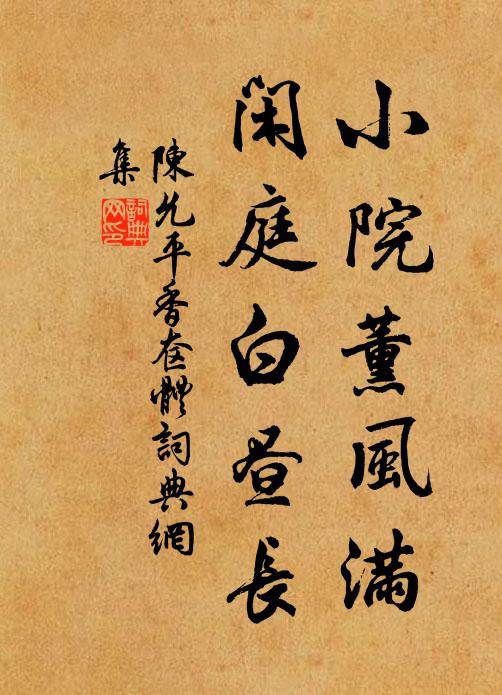 小院薰風滿
闲庭白昼長
陳允平香奩體詞典網
集
詞典网印